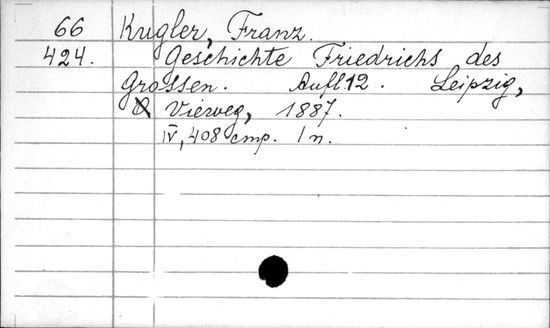 66 Kugler, Franz.
424. Geschichte Friedrichs des
Grossen. Aufl. 12. Leipzig,
Vieweg, 1887.
IV, 408 cmp. 1 n.